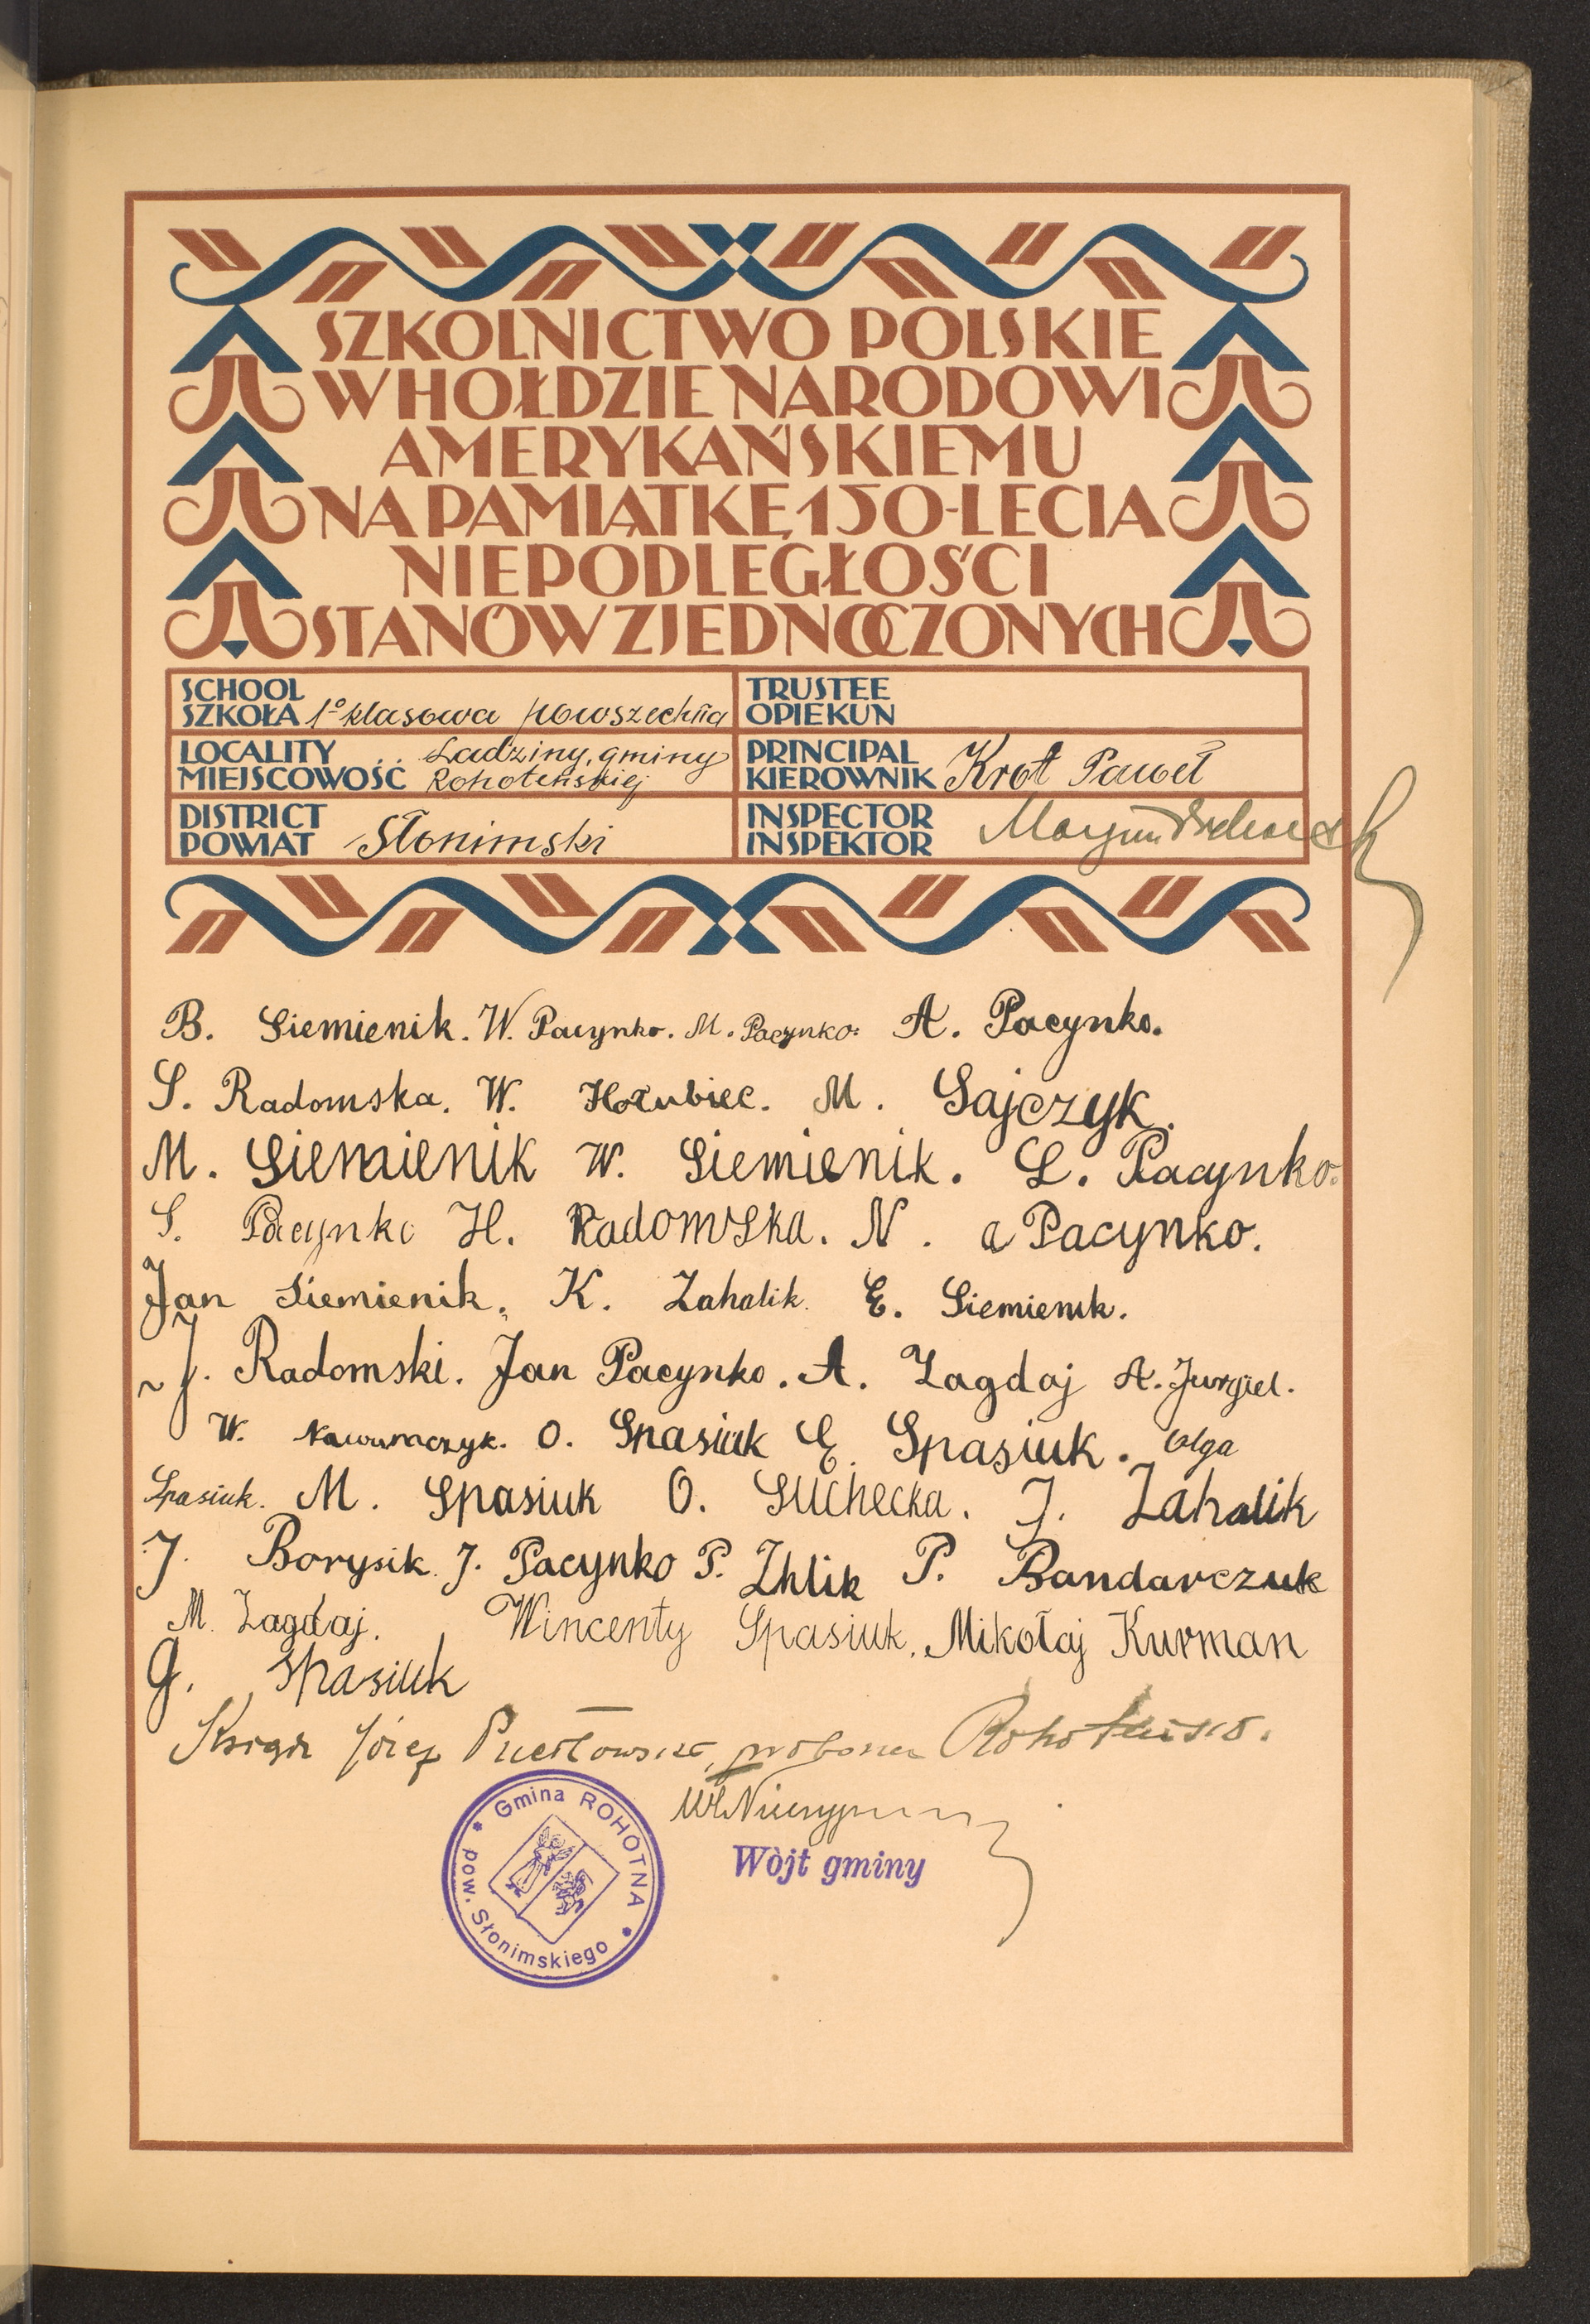 SZKOLNICTWO POLSKIE
W HOŁDZIE NARODOWI
AMERYKAŃSKIEMU
NA PAMIĄTKĘ 150-LECIA
NIEPODLEGŁOŚCI
STANÓW ZJEDNOCZONYCH
SCHOOL
SZKOŁA 1º klasowa powszechna
TRUSTEE
OPIEKUN
LOCALITY
MIEJSCOWOŚĆ Ladziny, gminy
Rohoteńskiej
PRINCIPAL
KIEROWNIK Krot Paweł
DISTRICT
POWIAT Słonimski
INSPECTOR
INSPEKTOR
B. Siemienik. W. Pacynko. M. Pacynko. A. Pacynko.
S. Radomska. W. Hołubiec. M. Sajczyk.
M. Siemienik W. Siemienik. L. Pacynko.
S. Pacynko H. Radomska. N. a Pacynko.
Jan Siemienik. K. Zahalik. E. Siemienik.
J. Radomski. Jan Pacynko. A. Zagdaj A. Jurgiel.
W. Nawumczyk. O. Spasiuk E. Spasiuk. Olga
Spasiuk. M. Spasiuk O. Suchecka. J. Zahalik
J. Borysik. J. Pacynko P. Zhlik P. Bandarczuk
M. Zagdaj. Wincenty Spasiuk. Mikołaj Kurman
G. Spasiuk
Ksiądz Józef proboszcz
Gmina ROHOTNA
pow. Słonimskiego
Wójt gminy